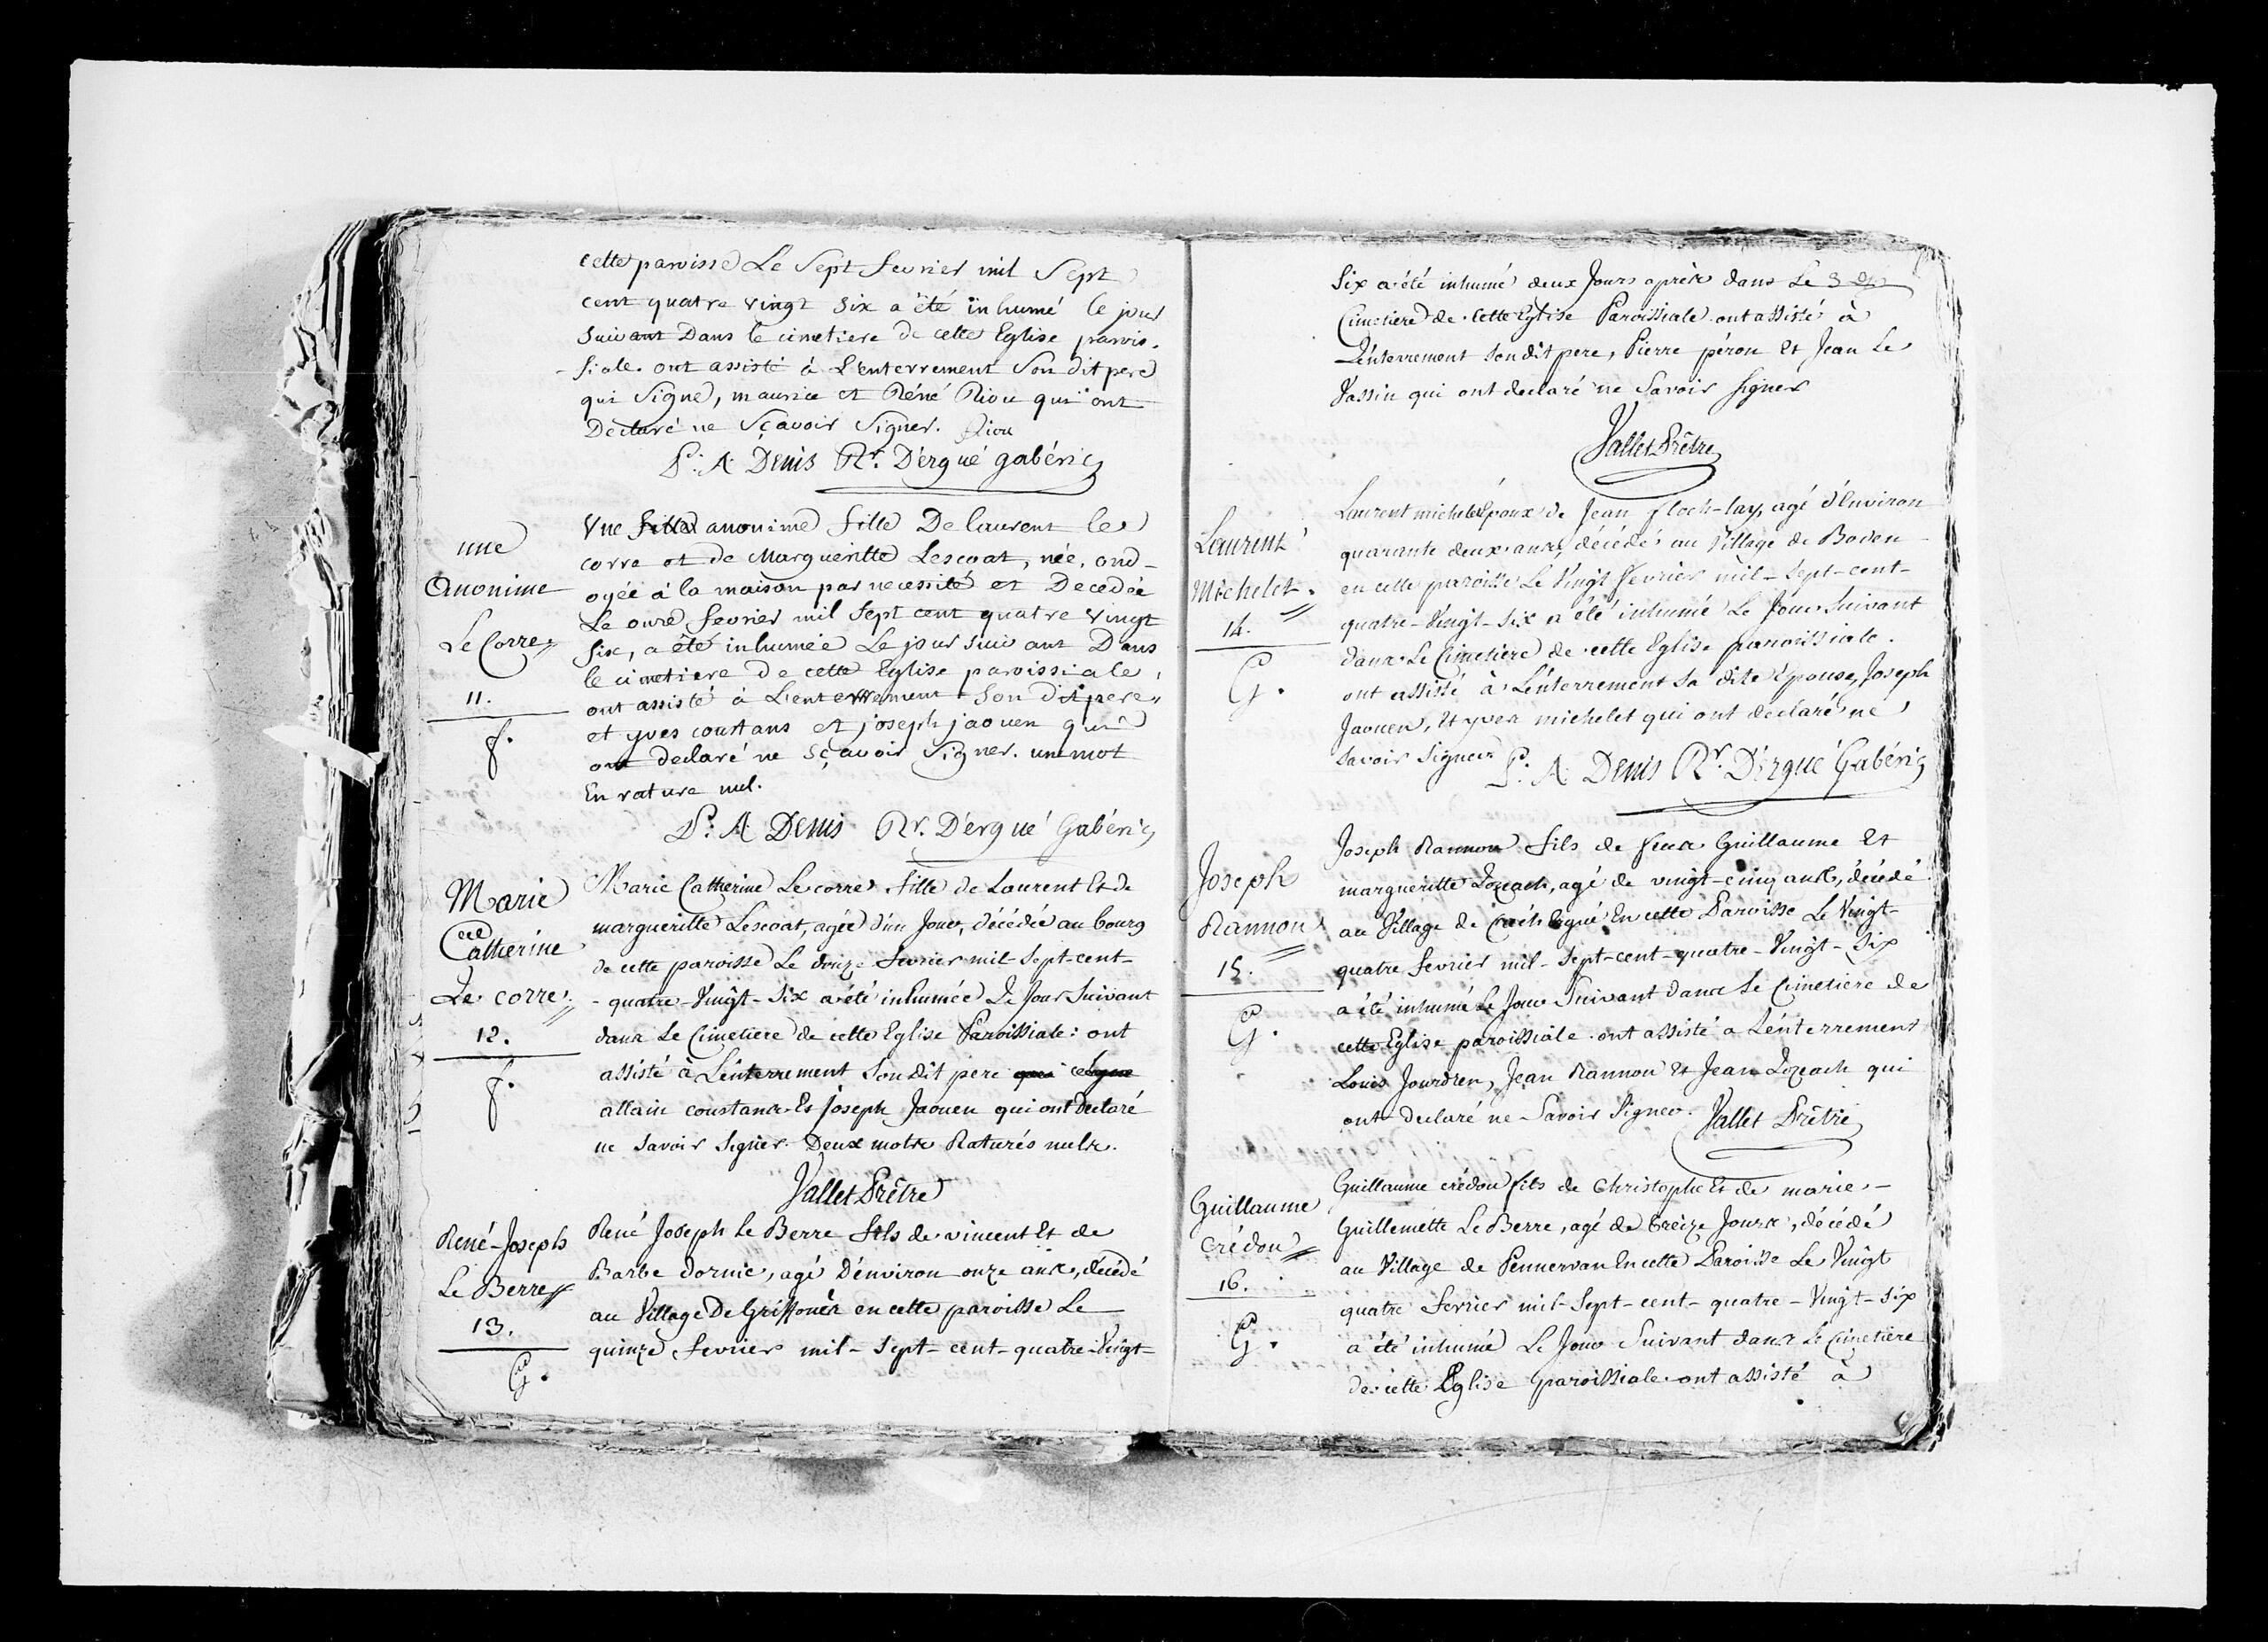 cette paroisse Le Sept fevrier mil Sept
cent quatre vingt six a été inhumé le jour
suivant Dans le cimetiere de cette Eglise parois-
-siale. ont assisté à L'enterrement Son dit pere
qui Signe, maurice et Réné Riou qui ont
Declaré ne Sçavoir Signer. Riou
P: A: Denis Rr. D'ergué gabéric
une
Anonime
Le Corre
11.
f.
Vne fille anonime fille De laurent le
corre et de Margueritte Lescoat, née, ond-
oyée à la maison par necessité et Decedée
Le onze fevrier mil Sept cent quatre vingt
Six, a été inhumée Le jour suivant Dans
le cimetiere de cette Eglise paroissiale,
ont assisté à L'enterrement Son dit pere,
et yves constans et joseph jaouen qui
ont declaré ne sçavoir Signer. un mot
En rature nul.
P: A: Denis Rr. D'ergué Gabéric
Marie
Catherine
Le corre
12.
f.
Marie Catherine Le corre fille de Laurent Et de
margueritte Lescoat, agée d'un Jour, décédée au bourg
de cette paroisse Le douze fevrier mil-sept-cent-
-quatre-Vingt-Six a été inhumée Le Jour Suivant
dans Le Cimetiere de cette Eglise Paroissiale: ont
assisté à L'enterrement Son dit pere qui
allain constans Et joseph Jaouen qui ont declaré
ne Savoir Signer. Deux mots Raturés nuls.
Vallet Prêtre
René-Joseph
Le Berre
13.
G.
René Joseph Le Berre fils de vincent Et de
Barbe dornic, agé D'environ onze ans, décédé
au Village De Griffonès en cette paroisse Le
quinze fevrier mil-sept-cent-quatre-Vingt-
Six a été inhumé deux Jours après dans Le
Cimetiere de cette Eglise Paroissiale. ont assisté à
L'enterrement Son dit pere, Pierre péron Et Jean Le
Vassin qui ont declaré ne Savoir Signer
Vallet Prêtre
Laurent
Michelet.
14.
G.
Laurent michelet Epoux de Jean floch-lay, agé d'Environ
quarante deux ans, décédé au Village de Boden
en cette paroisse Le Vingt fevrier mil-sept-cent-
quatre-Vingt-Six a été inhumé Le Jour Suivant
dans Le Cimetiere de cette Eglise paroissiale.
ont assisté à L'enterrement Sa dite Epouse, Joseph
Jaouen, Et yves michelet qui ont declaré ne
Savoir Signer P: A: Denis Rr. D'ergué Gabéric
Joseph
Rannou
15.
G.
Joseph Rannou fils de feux Guillaume Et
margueritte Lozeach, agé de vingt-cinq ans, décédé
au Village de Créch Ergué En cette Paroisse Le Vingt-
quatre fevrier mil-Sept-cent-quatre-Vingt-Six
a été inhumé Le Jour Suivant dans Le Cimetiere de
cette Eglise paroissiale. ont assisté a L'enterrement
Louis Jourdren, Jean Rannou Et Jean Lozeach qui
ont declaré ne Savoir Signer. Vallet Prêtre
Guillaume
Crédou
16.
G.
Guillaume crédou fils de Christophe Et de marie-
Guillemette Le Berre, agé de treize Jours, décédé
au Village de Pennervan En cette Paroisse Le Vingt
quatre fevrier mil-Sept-cent-quatre-Vingt-Six
a été inhumé Le Jour Suivant dans Le Cimetiere
de cette Eglise paroissiale. ont assisté à